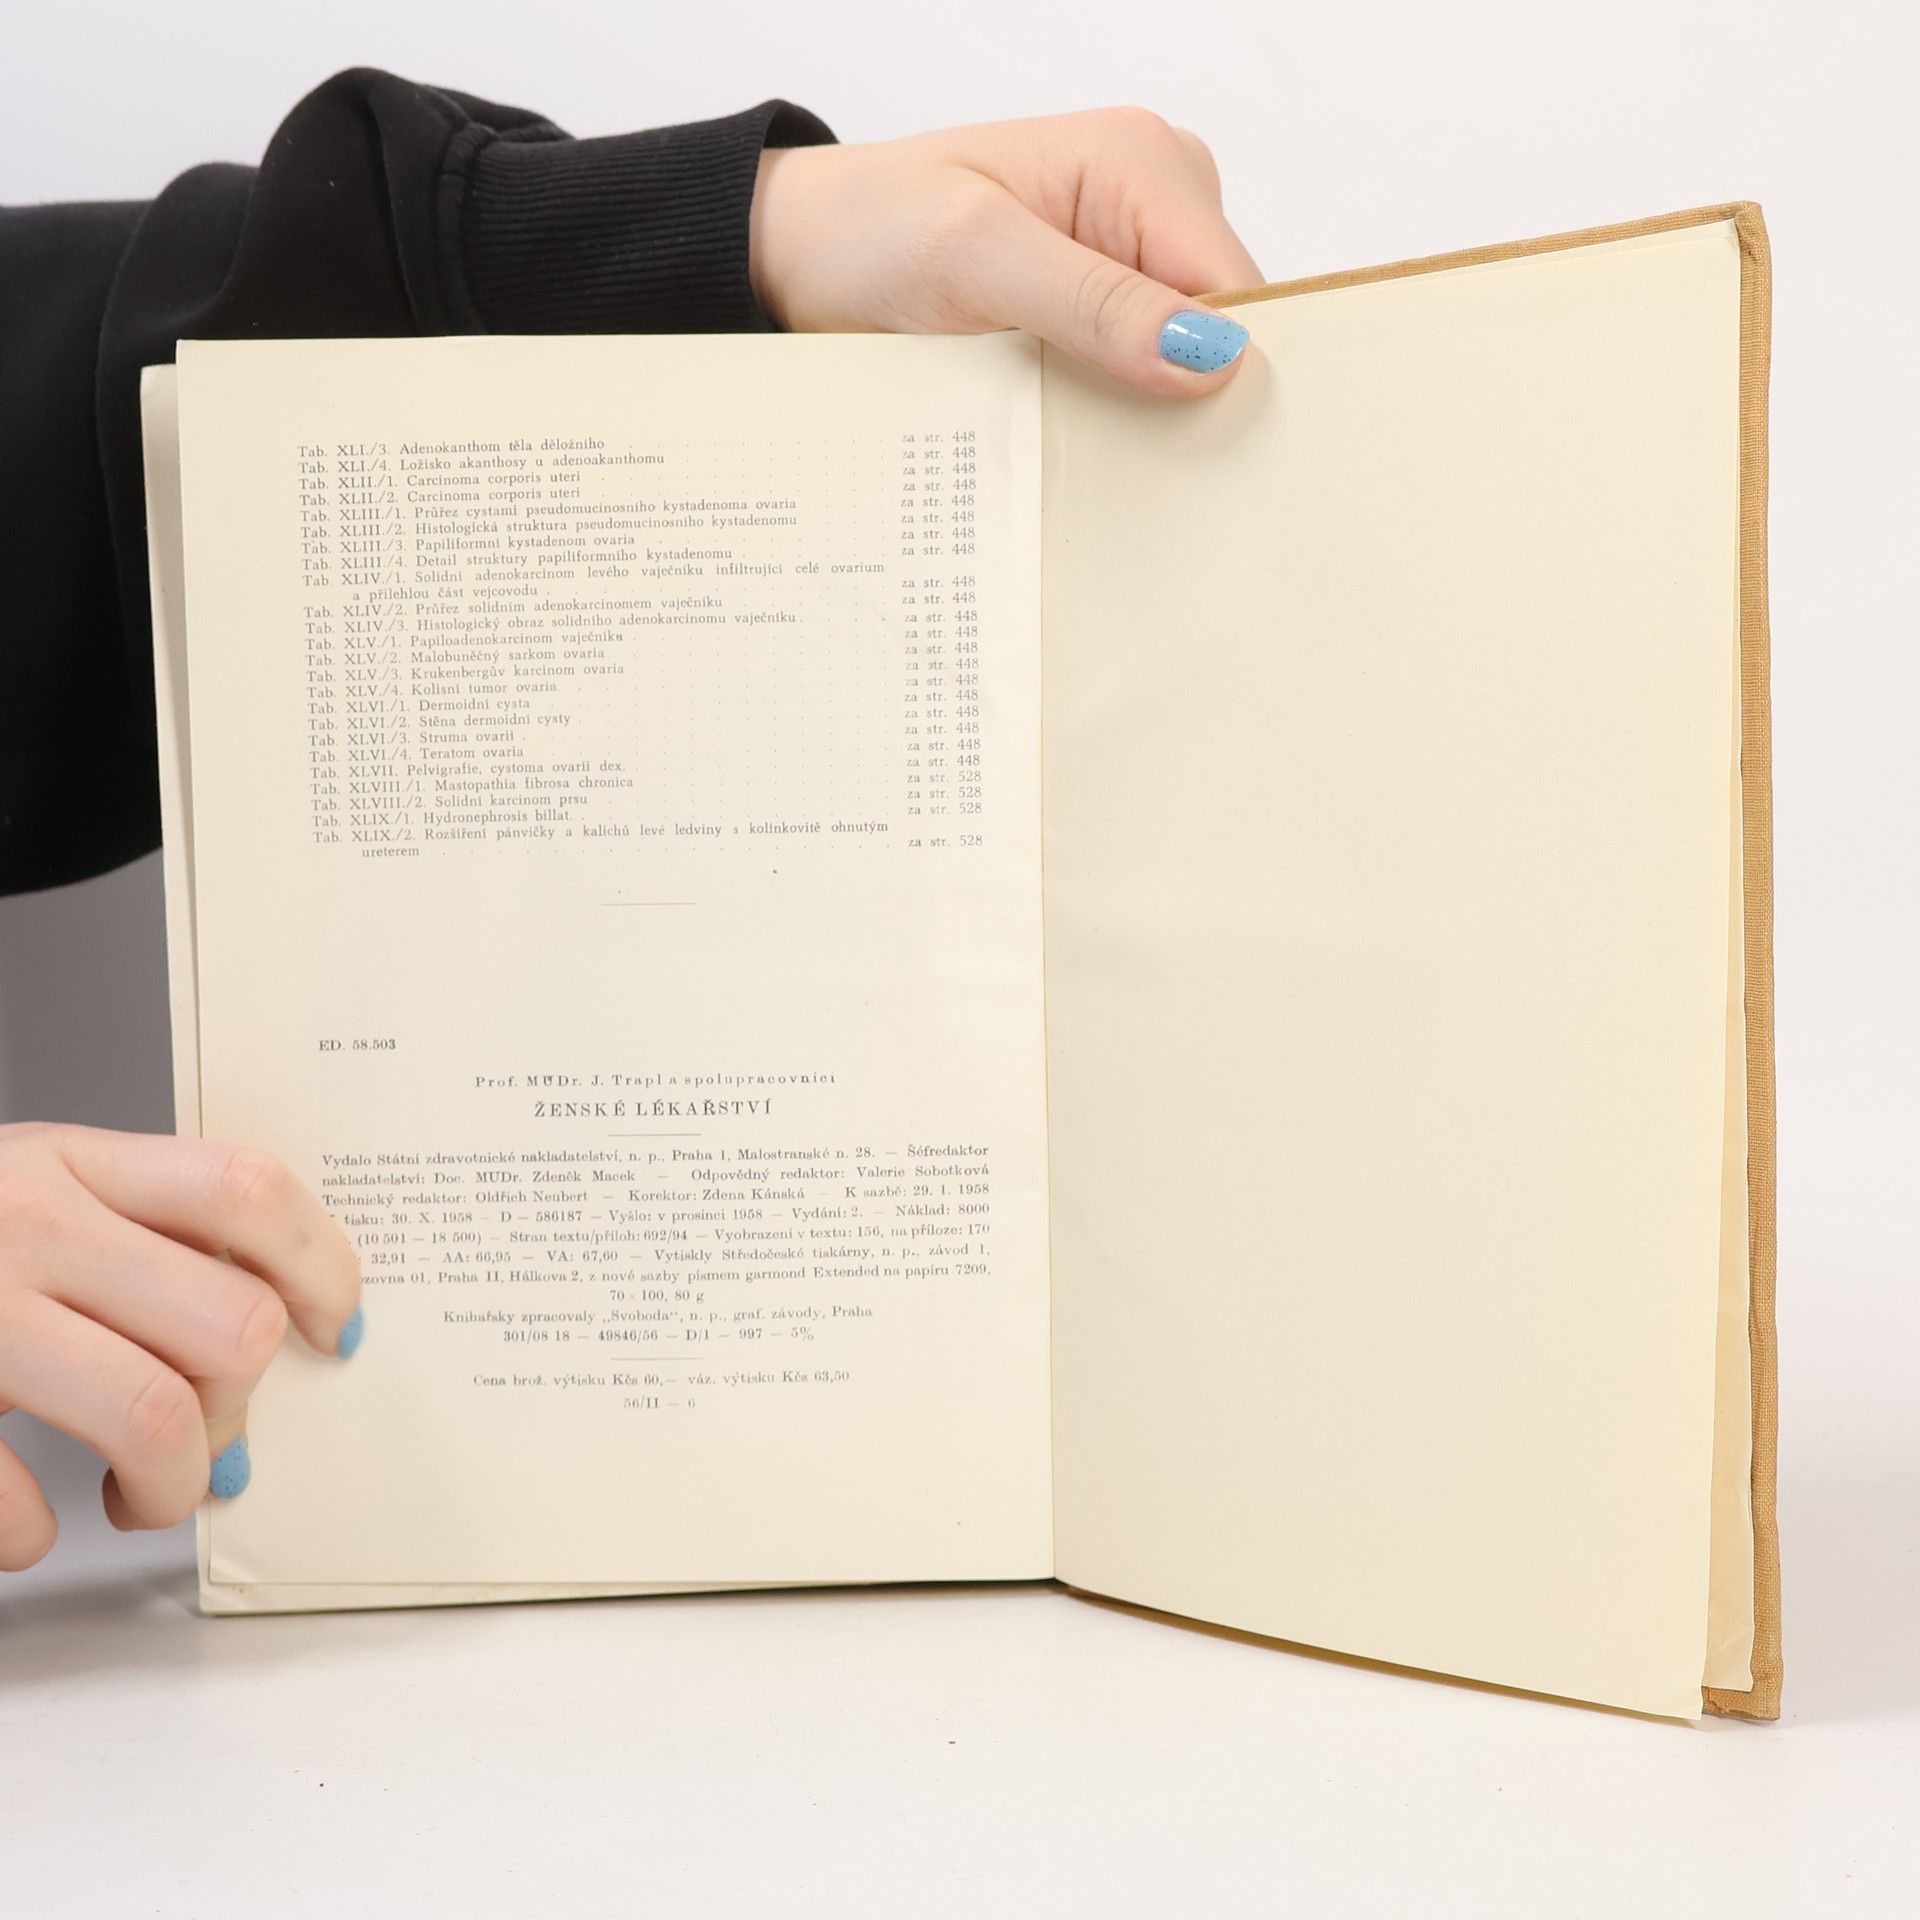 Tab. XLI./3. Adenokanthom těla děložního . . . . . . . . . . za str. 448
Tab. XLI./4. Ložisko akanthosy u adenoakanthomu . . . . . . . . za str. 448
Tab. XLII./1. Carcinoma corporis uteri . . . . . . . . . . . za str. 448
Tab. XLII./2. Carcinoma corporis uteri . . . . . . . . . . . za str. 448
Tab. XLIII./1. Průřez cystami pseudomucinosního kystadenoma ovaria . . . za str. 448
Tab. XLIII./2. Histologická struktura pseudomucinosního kystadenomu . . . za str. 448
Tab. XLIII./3. Papiliformní kystadenom ovaria . . . . . . . . . za str. 448
Tab. XLIII./4. Detail struktury papiliformního kystadenomu . . . . . . za str. 448
Tab. XLIV./1. Solidní adenokarcinom levého vaječníku infiltrující celé ovarium
a přilehlou část vejcovodu . . . . . . . . . . . . . za str. 448
Tab. XLIV./2. Průřez solidním adenokarcinomem vaječníku . . . . . . za str. 448
Tab. XLIV./3. Histologický obraz solidního adenokarcinomu vaječníku . . . . za str. 448
Tab. XLV./1. Papiloadenokarcinom vaječníku . . . . . . . . . . za str. 448
Tab. XLV./2. Malobuněčný sarkom ovaria . . . . . . . . . . za str. 448
Tab. XLV./3. Krukenbergův karcinom ovaria . . . . . . . . . . za str. 448
Tab. XLV./4. Kolisní tumor ovaria . . . . . . . . . . . . za str. 448
Tab. XLVI./1. Dermoidní cysta . . . . . . . . . . . . . za str. 448
Tab. XLVI./2. Stěna dermoidní cysty . . . . . . . . . . . . za str. 448
Tab. XLVI./3. Struma ovarii . . . . . . . . . . . . . . za str. 448
Tab. XLVI./4. Teratom ovaria . . . . . . . . . . . . . za str. 448
Tab. XLVII. Pelvigrafie, cystoma ovarii dex. . . . . . . . . . . za str. 448
Tab. XLVIII./1. Mastopathia fibrosa chronica . . . . . . . . . za str. 528
Tab. XLVIII./2. Solidní karcinom prsu . . . . . . . . . . . za str. 528
Tab. XLIX./1. Hydronephrosis billat. . . . . . . . . . . . . za str. 528
Tab. XLIX./2. Rozšíření pánvičky a kalichů levé ledviny s kolínkovitě ohnutým
ureterem . . . . . . . . . . . . . . . . . za str. 528
ED. 58.503
Prof. MUDr. J. Trapl a spolupracovníci
ŽENSKÉ LÉKAŘSTVÍ
Vydalo Státní zdravotnické nakladatelství, n. p., Praha 1, Malostranské n. 28. — Šéfredaktor
nakladatelství: Doc. MUDr. Zdeněk Macek — Odpovědný redaktor: Valerie Sobotková
Technický redaktor: Oldřich Neubert — Korektor: Zdena Kánská — K sazbě: 29. 1. 1958
tisku: 30. X. 1958 — D — 586187 — Vyšlo: v prosinci 1958 — Vydání: 2. — Náklad: 8000
(10 501 — 18 500) — Stran textu/příloh: 692/94 — Vyobrazení v textu: 156, na příloze: 170
: 32,91 — AA: 66,95 — VA: 67,60 — Vytiskly Středočeské tiskárny, n. p., závod 1,
ozovna 01, Praha II, Hálkova 2, z nové sazby písmem garmond Extended na papíru 7209,
70 × 100, 80 g
Knihařsky zpracovaly „Svoboda“, n. p., graf. závody, Praha
301/08 18 — 49846/56 — D/1 — 997 — 5%
Cena brož. výtisku Kčs 60,— váz. výtisku Kčs 63,50
56/II — 6